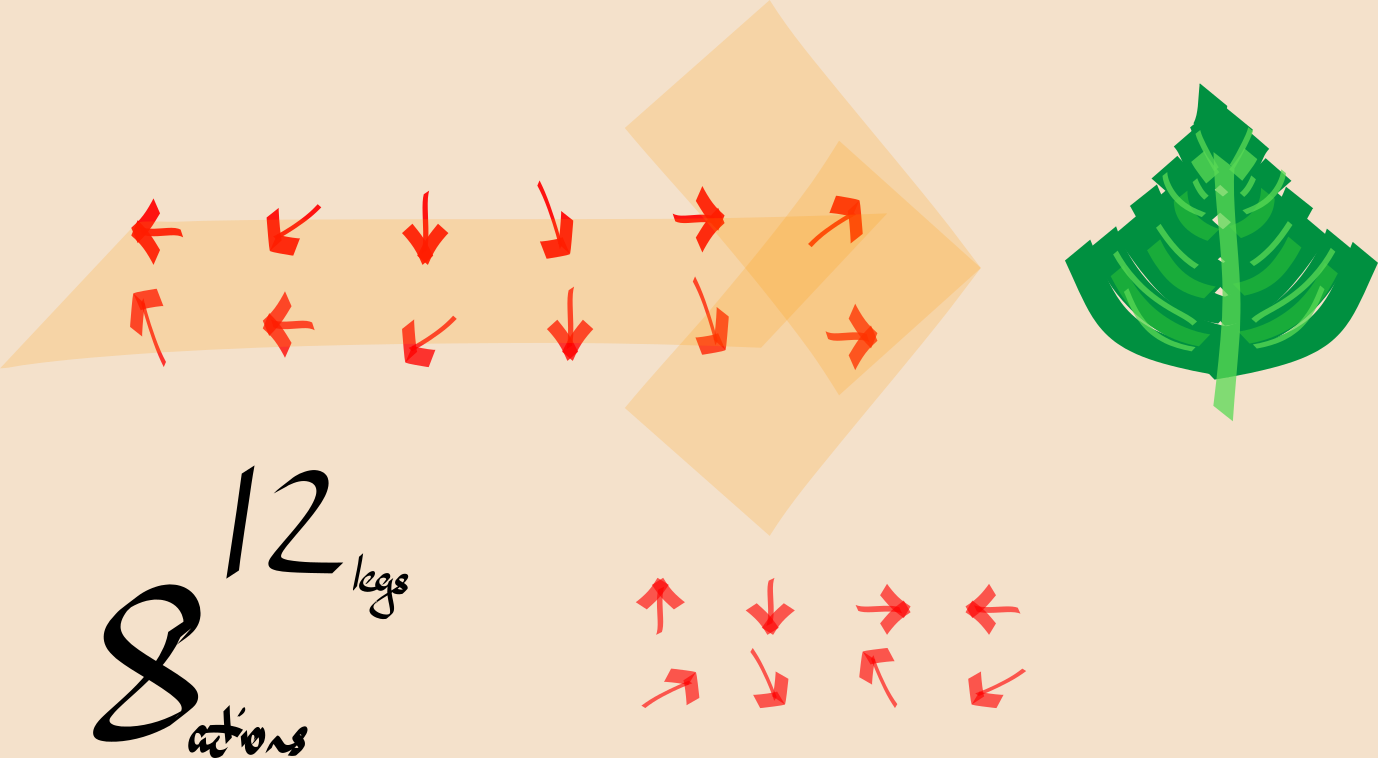 12 legs
8 actions